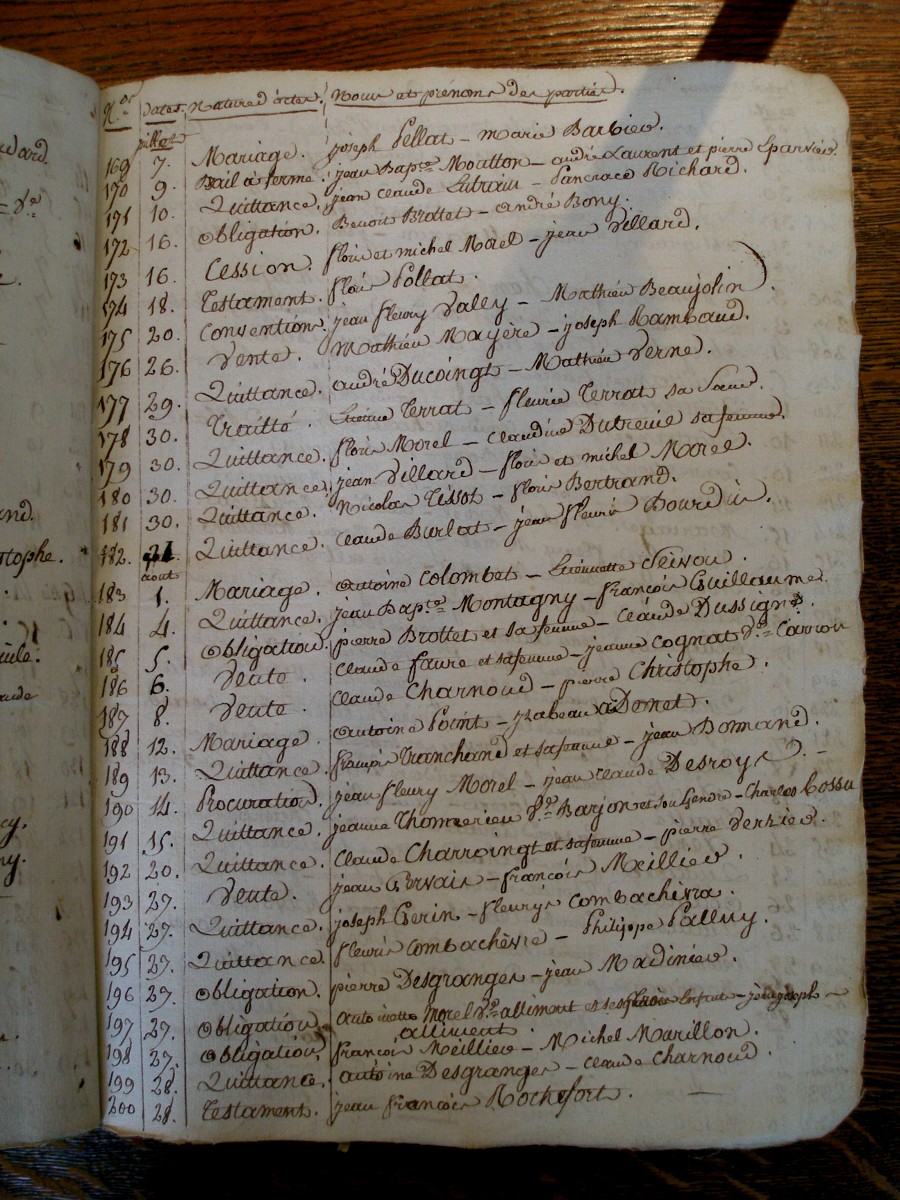 N.os Dates. Nature d'actes. Noms et prénoms des parties.
juillet
169 7. Mariage. joseph Pellat – marie Barbier.
170 9. Bail à ferme. jean Bap.te Moutton – andré Laurent et pierre
171 10. Quittance. jean claude – Pancrace Richard.
172 16. Obligation. Benoit Brottet – andré Bony.
173 16. Cession. floris et michel Morel – jean Villard.
174 18. Testament. floris Pollat.
175 20. Convention. jean fleury Vally – Mathieu Beaujolin
176 26. Vente. Mathieu Mayère – joseph Rambaud.
177 29. Quittance. andré Ducoingt – Mathieu Verne.
178 30. Traitté. Etienne Terrat – fleurie Terrat sa Soeur.
179 30. Quittance. floris Morel – claudine Dutreuil sa femme.
180 30. Quittance. jean Villard – floris et michel Morel.
181 30. Quittance. Nicolas Tissot – floris Bertrand.
182. 31. Quittance. claude Burlat – jean fleuri Bourdin.
aout
183 1. Mariage. antoine Colombet – Etiennette
184 4. Quittance. jean Bap.te Montagny – françois Guillaume.
185 5. Obligation. pierre Brottet et sa femme – claude Dussigne.
186 6. Vente. claude faure et sa femme – jeanne Cognat v.e Carron
187 8. Vente. claude Charnoud – pierre Christophe.
188 12. Mariage. antoine Point – Donet.
189 13. Quittance. françois Tranchand et sa femme – jean Domand.
190 14. Procuration. jean fleury Morel – jean claude Desroys.
191 15. Quittance. jeanne v.e Barjon et son Gendre – Charles Cossu
192 20. Quittance. Claude Charroingt et sa femme – pierre Verzier.
193 27. Vente. jean Gervais – françois Meillier.
194 27. Quittance. joseph Gerin – fleurys Combachèvre.
195 27. Quittance. fleuris Combachèvre – Philippe Palluy.
196 27. Obligation. pierre Desgranges – jean Madinier.
197 27. Obligation. antoinette Morel v.e allimont et ses Enfants – joseph
allimant.
198 27. Obligation. françois Meillier – Michel Marillon.
199 28. Quittance. antoine Desgranges – claude Charnoud.
200 28. Testament. jean françois Rochefort.